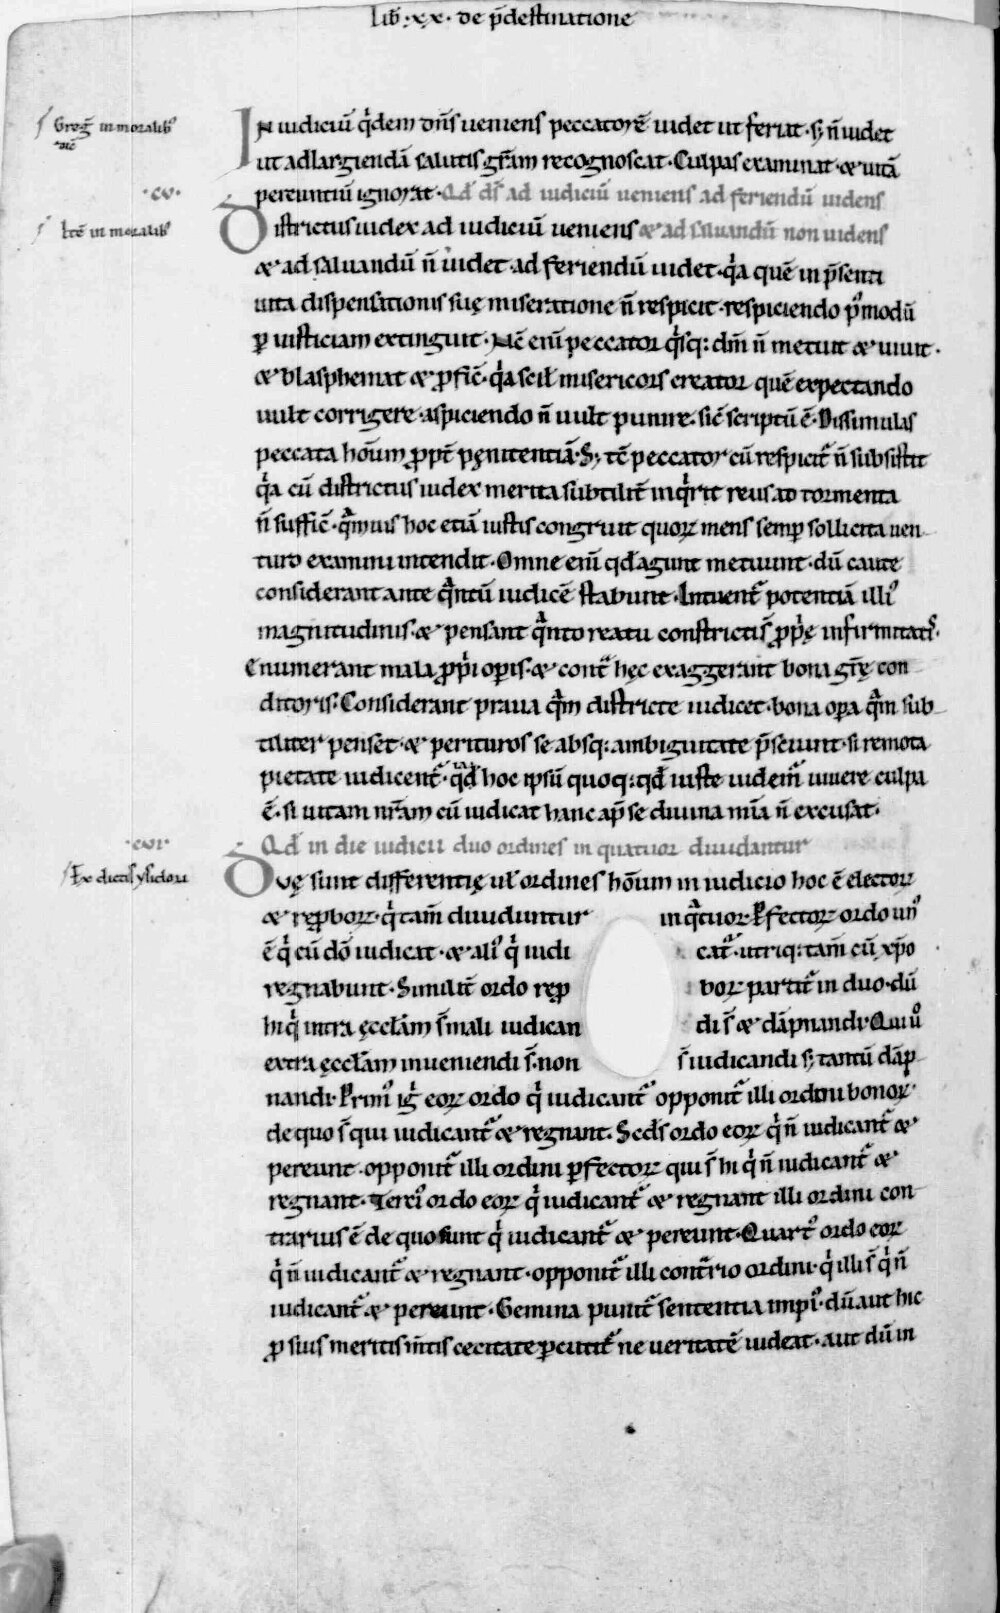 lib̄ .xx. de p̄destinatione
Greḡ in moralib᷒
IN iudiciū q̇dem dn̄s ueniens peccatorē uidet ut feriat. sꝫ n̄ uidet
ut ad largiendā salutis gr̄am recognoscat. Culpas examinat. & uitā
.cv.
pereuntiū ignorat. Qd̄ ds̄ ad iudiciū ueniens ad feriendū uidens
Itē in moralib᷒
Districtus iudex ad iudiciū ueniens & ad saluandū non uidens
& ad saluandū n̄ uidet. ad feriendū uidet. q̇a quē in p̄senti
uita dispensationis suę miseratione n̄ respicit. respiciendo p᷒modū
ꝑ iusticiam extinguit. Nc̄ eni̅ peccator q̇sqꝫ dm̄ n̄ metuit & uiuit.
& blasphemat & ꝓfic̄. q̇a scił misericors creator quē expectando
uult corrigere. aspiciendo n̄ uult punire. sic̄ scriptū ē. Dissimulas
peccata hoı̅um ꝓpt̄ pęnitentiā. Sꝫ tc̄ peccator cū respicit᷑ n̄ subsistit
q̇a cū districtus iudex merita subtilit̄ inq̇rit reus ad tormenta
n̄ suffic̄. q̄muis hoc etiā iustis congruit quoꝝ mens semꝑ sollicita uen
turo examini intendit. Omne eni̅ qd̄ agunt metuunt. dū caute
considerant ante q̄ntū iudicē stabunt. Intuent᷑ potentiā illi᷒
magnitudinis. & pensant q̄nto reatu constricti s̄ ꝓṗę infirmitatis.
Enumerant mala ꝓṗi oꝑis. & cont᷑ hęc exaggerant bona gr̄ę con
ditoris. Considerant praua q̄m districte iudicet. bona oꝑa q̄m sub
tiliter penset. & perituros se absqꝫ ambiguitate p̄sciunt. si remota
pietate iudicent᷑. q̇a hoc ipsū quoqꝫ qd̄ iuste uidem᷑ uiuere culpa
ē. si uitam nr̄am cū iudicat hanc ap̄ se diuina mia̅ n̄ excusat.
.cvi.
Qd̄ in die iudicii duo ordines in quatuor diuidantur
Ex dictis ysidori
Duę sunt differentię uł ordines hoı̅um in iudicio hoc ē electoꝝ
& reꝓboꝝ. q̇ tam̄ diuiduntur in q̇tuor. ꝑfectoꝝ ordo un᷒
ē q̇ cū dō iudicat. & ali᷒ q̇ iudicat᷑. utriqꝫ tam̄ cū xp̄o
regnabunt. Similit̄ ordo reꝓboꝝ partit᷑ in duo. dū
hi q̇ intra ęccłam s̄ mali iudicandi s̄ & dāpnandi. Qui u᷒
extra ęccłam inueniendi s̄. non s̄ iudicandi sꝫ tantū dāp
nandi. Prim᷒ ig̊ eoꝝ ordo q̇ iudicant᷑ opponit᷑ illi ordini bonoꝝ.
de quo s̄ qui iudicant᷑ & regnant. Scd̄s ordo eoꝝ q̇ n̄ iudicant᷑ &
pereunt. opponit᷑ illi ordini ꝑfectoꝝ qui s̄ hi q̇ n̄ iudicant᷑ &
regnant. Terci᷒ ordo eoꝝ q̇ iudicant᷑ & regnant illi ordini con
trarius ē de quo sunt q̇ iudicant᷑ & pereunt. Quart᷒ ordo eoꝝ
q̇ n̄ iudicant᷑ & regnant. opponit᷑ illi contr̄rio ordini. q̇ illi s̄ q̇ n̄
iudicant᷑ & pereunt. Gemina punit᷑ sententia impi᷒. dū aut hic
ꝓ suis meritis m̄tis cecitate ꝑcutit᷑ ne ueritatē uideat. aut dū in